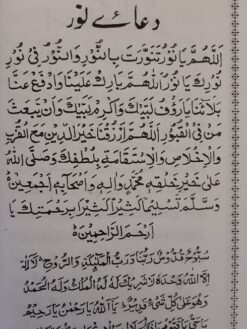 دعائے نور
اَللّٰهُمَّ يَا نُوْرُ تَنَوَّرْتَ بِالنُّوْرِ وَالنُّوْرُ فِيْ نُوْرِ
نُوْرِكَ يَا نُوْرُ اَللّٰهُمَّ بَارِكْ عَلَيْنَا وَادْفَعْ عَنَّا
بَلَاءَنَا يَا رَؤُفُ لَبَّيْكَ وَاَكْرِمْ لَبَّيْكَ وَاَنْ يَّبْعَثَ
مَنْ فِي الْقُبُوْرِ اَللّٰهُمَّ ارْزُقْنَا خَيْرَ الدَّارَيْنِ مَعَ الْقُرْبِ
وَالْاِخْلَاصِ وَالْاِسْتِقَامَةِ بِلُطْفِكَ وَصَلَّى اللّٰهُ
عَلٰى خَيْرِ خَلْقِهٖ مُحَمَّدٍ وَّاٰلِهٖ وَاَصْحَابِهٖ اَجْمَعِيْنَ
وَسَلَّمَ تَسْلِيْمًا كَثِيْرًا كَثِيْرًا بِرَحْمَتِكَ يَا
اَرْحَمَ الرَّاحِمِيْنَ
سُبُّوْحٌ قُدُّوْسٌ رَبُّنَا وَرَبُّ الْمَلٰٓئِكَةِ وَالرُّوْحِ لَا اِلٰهَ
اِلَّا اللّٰهُ وَحْدَهٗ لَا شَرِيْكَ لَهٗ لَهُ الْمُلْكُ وَلَهُ الْحَمْدُ
وَهُوَ عَلٰى كُلِّ شَيْءٍ قَدِيْرٌ يَا اَللّٰهُ يَا رَحْمٰنُ يَا رَحِيْمُ